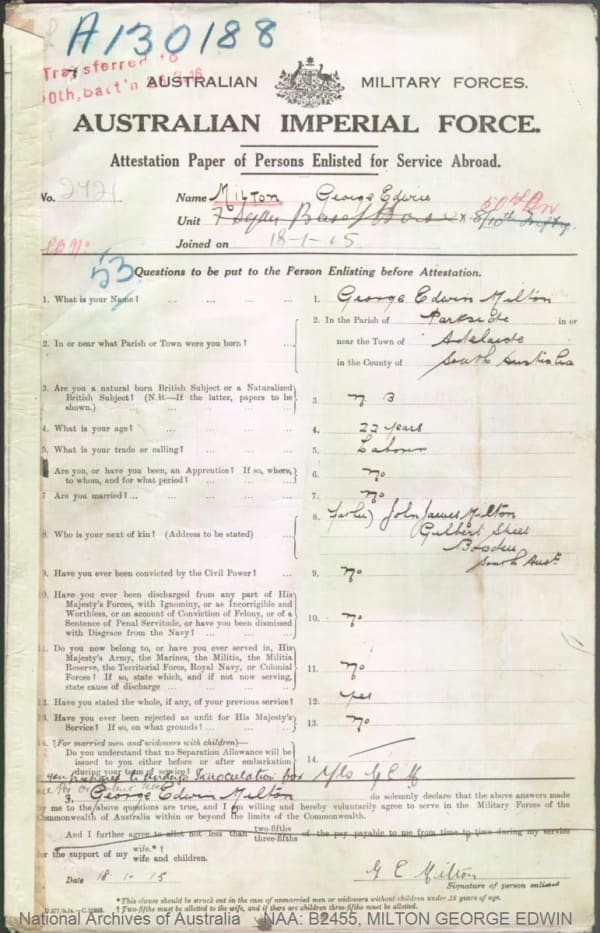 A130188
Transferred to
50th, batt'n 26 2 16
AUSTRALIAN MILITARY FORCES.
AUSTRALIAN IMPERIAL FORCE.
Attestation Paper of Persons Enlisted for Service Abroad.
No. 2421
Name MILTON George Edwin
50th Bn
Unit 7 Base × 8/10th Inftry.
Joined on 18-1-15
53
Questions to be put to the Person Enlisting before Attestation.
1. What is your Name? ... ... ... ... 1. George Edwin Milton
2. In or near what Parish or Town were you born? ... 2. In the Parish of Parkside in or
near the Town of Adelaide
in the County of South Australia
3. Are you a natural born British Subject or a Naturalized
British Subject? (N.B.—If the latter, papers to be
shown.) ... ... ... ... 3. N. B
4. What is your age? ... ... ... ... 4. 22 years
5. What is your trade or calling? ... ... ... 5. Labourer
Are you, or have you been, an Apprentice? If so, where,
to whom, and for what period? ... ... ... 6. No
7 Are you married? ... ... ... ... ... 7. No
8. Who is your next of kin? (Address to be stated) ... 8. (father) John James Milton
Gilbert Street
Bowden
South Aust.
9. Have you ever been convicted by the Civil Power? ... 9. No
0. Have you ever been discharged from any part of His
Majesty's Forces, with Ignominy, or as Incorrigible and
Worthless, or on account of Conviction of Felony, or of a
Sentence of Penal Servitude, or have you been dismissed
with Disgrace from the Navy? ... ... ... 10. No
Do you now belong to, or have you ever served in, His
Majesty's Army, the Marines, the Militia, the Militia
Reserve, the Territorial Force, Royal Navy, or Colonial
Forces? If so, state which, and if not now serving,
state cause of discharge ... ... ... ... 11. No
2. Have you stated the whole, if any, of your previous service? 12. Yes
3. Have you ever been rejected as unfit for His Majesty's
Service? If so, on what grounds? ... ... ... 13. No
4. (For married men and widowers with children)—
Do you understand that no Separation Allowance will be
issued to you either before or after embarkation
during your term of service? 14.
you prepared to undergo Innoculation for Yes G E M
I, George Edwin Milton do solemnly declare that the above answers made
by me to the above questions are true, and I am willing and hereby voluntarily agree to serve in the Military Forces of the
Commonwealth of Australia within or beyond the limits of the Commonwealth.
And I further agree to allot not less than two-fifths three-fifths of the pay payable to me from time to time during my service
for the support of my wife.* † wife and children.
Date 18-1-15 G E Milton
Signature of person enlisted
* This clause should be struck out in the case of unmarried men or widowers without children under 18 years of age.
† Two-fifths must be allotted to the wife, and if there are children three-fifths must be allotted.
National Archives of Australia NAA: B2455, MILTON GEORGE EDWIN